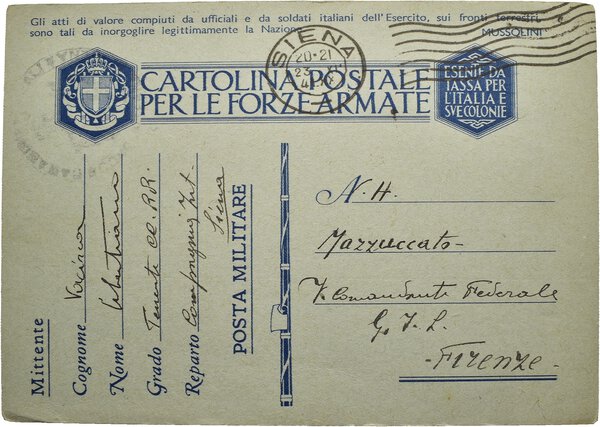 Gli atti di valore compiuti da ufficiali e da soldati italiani dell'Esercito, sui fronti terrestri,
sono tali da inorgoglire legittimamente la Nazione
MUSSOLINI
SIENA
20-21
CARTOLINA POSTALE
PER LE FORZE ARMATE
ESENTE DA
TASSA PER
L'ITALIA E
SVE COLONIE
Mittente
Cognome
Nome
Grado Tenente CC. RR.
Reparto Compagnia Int.
Siena
POSTA MILITARE
N. H.
Mazzuccato
V. Comandante Federale
G. I. L.
- FIRENZE -